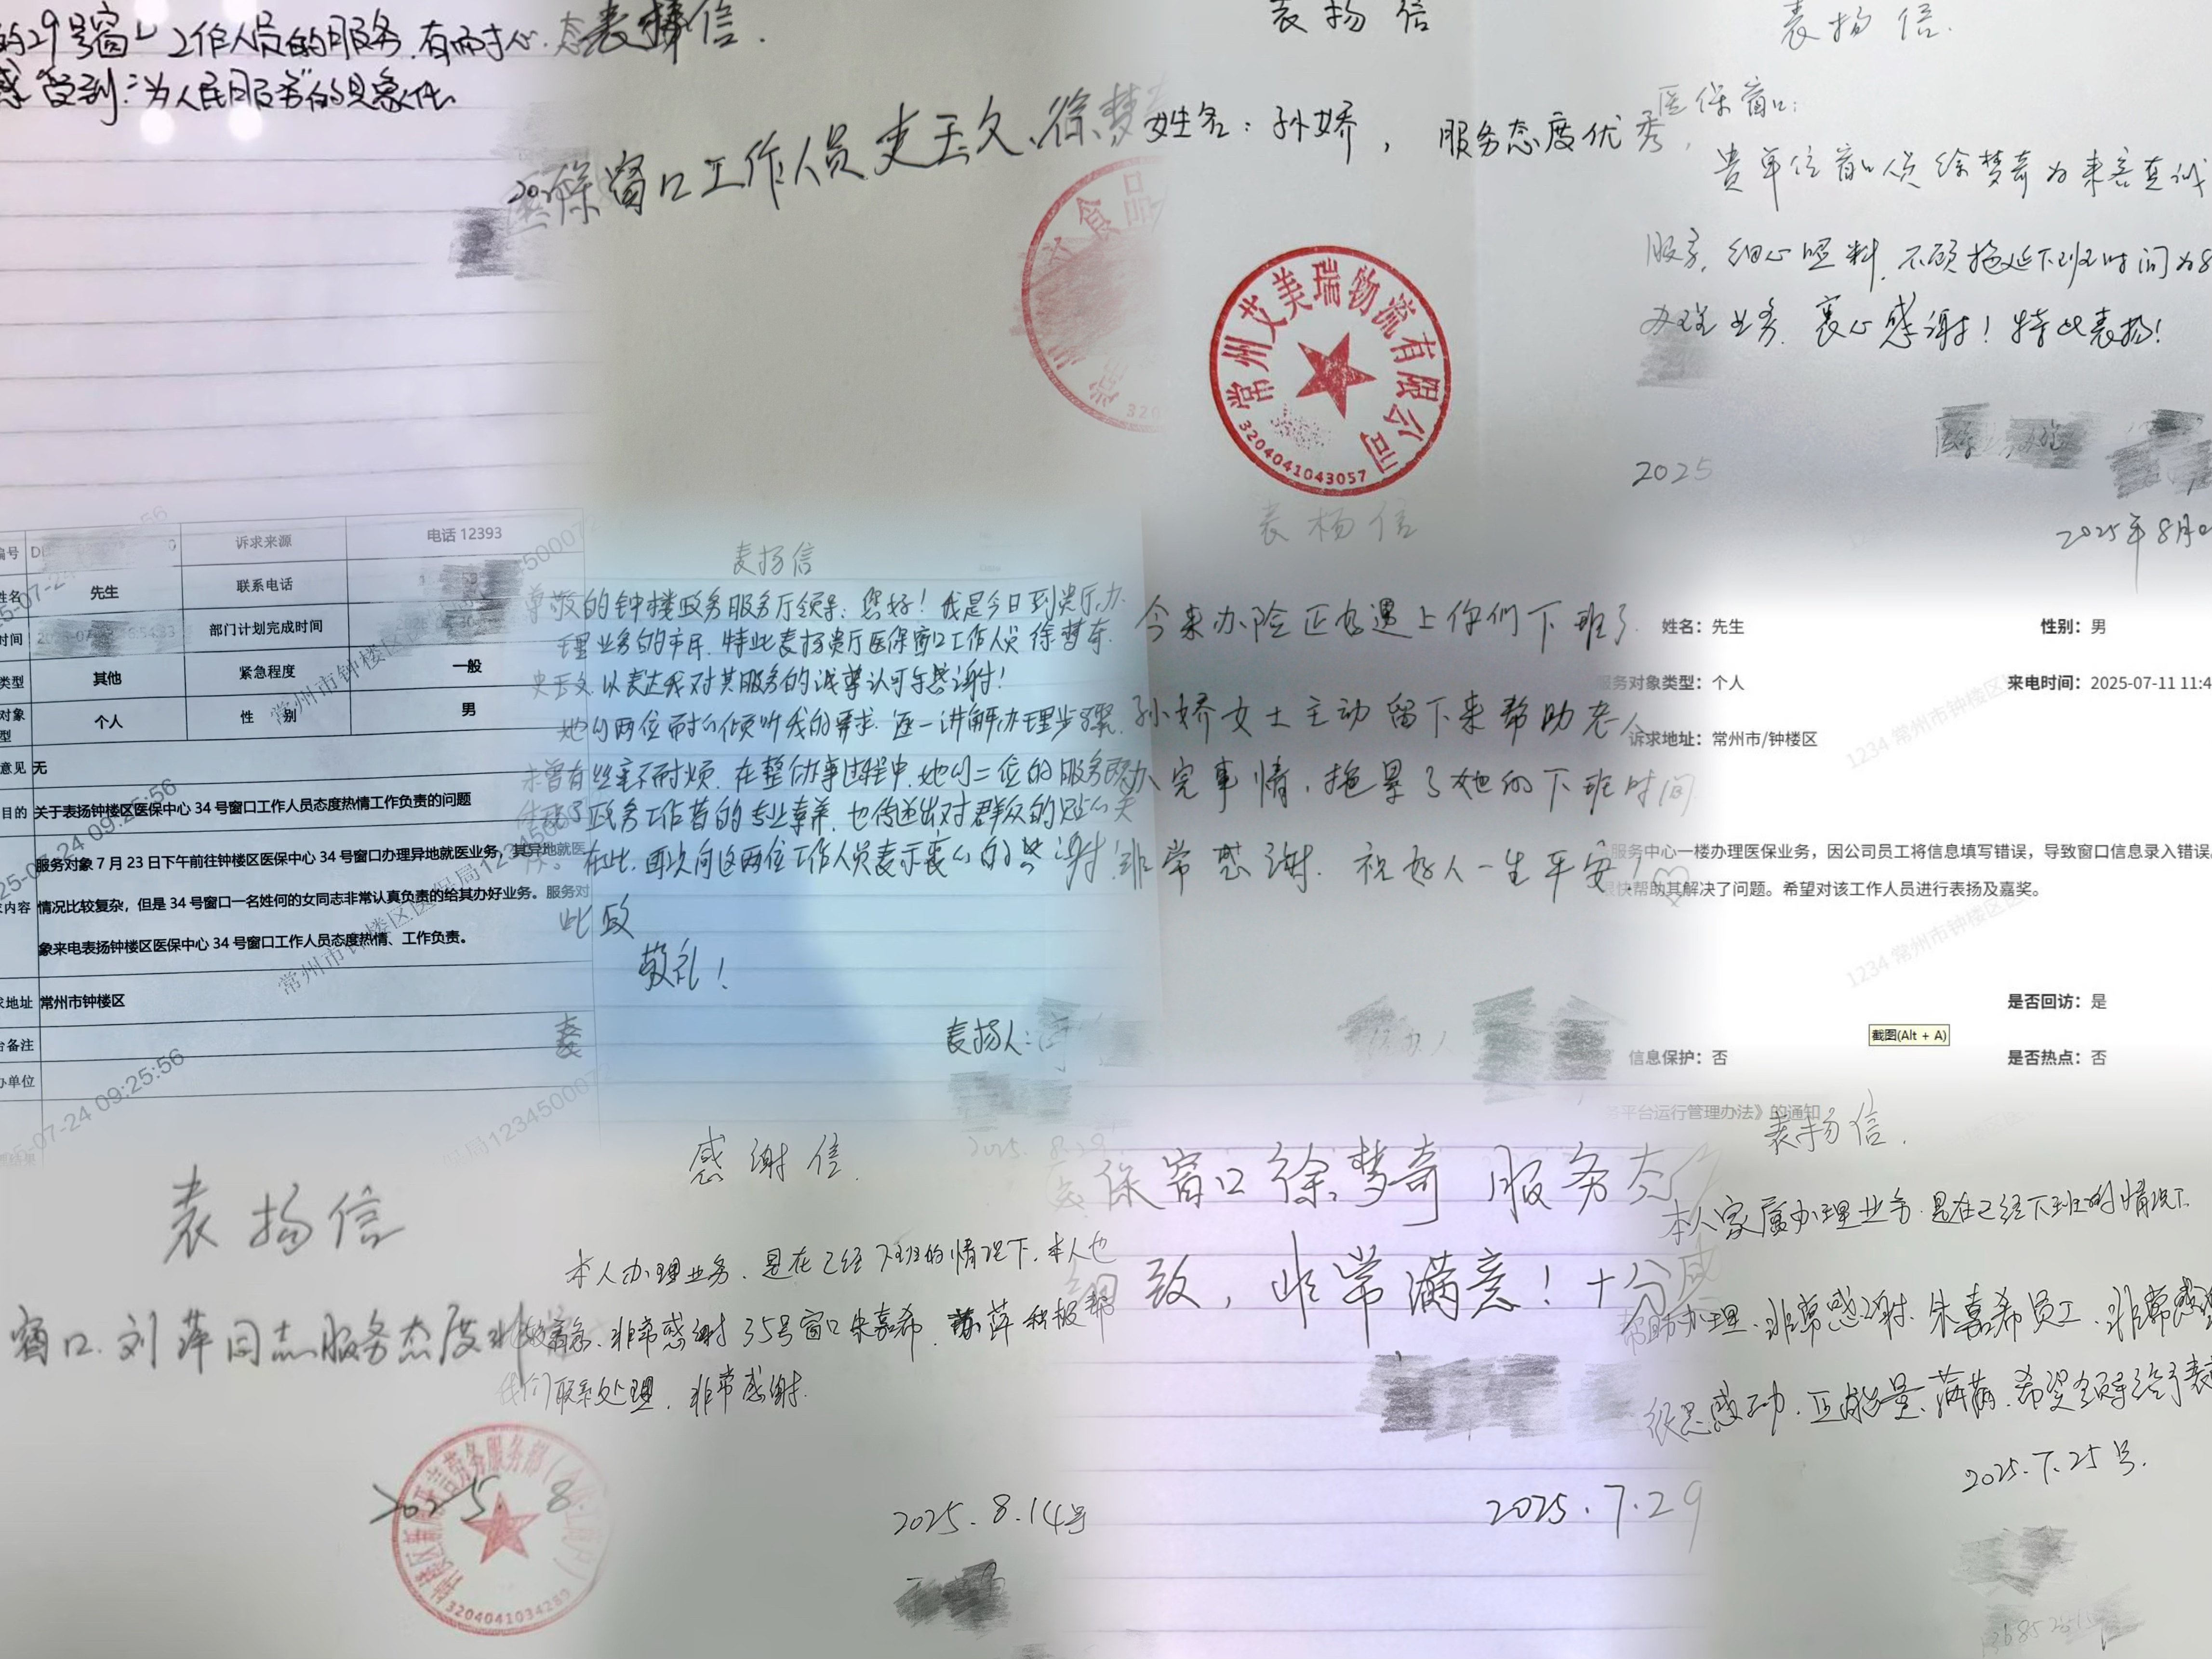 的29号窗口工作人员的服务,有耐心.态
感受到:"为人民服务"的具象化.
表扬信.
窗口工作人员史玉文、徐梦
食品
表扬信
姓名:孙娇,服务态度优秀,
常州艾美瑞物流有限公司
3204041043057
表扬信.
医保窗口:
贵单位窗口人员徐梦奇为来客真诚
服务,细心照料,不顾拖延下班时间为
办理业务.衷心感谢!特此表扬!
2025
2025年8月
编号
诉求来源 电话 12393
姓名 先生 联系电话
时间 部门计划完成时间
类型 其他 紧急程度 一般
对象型 个人 性 别 男
意见 无
目的 关于表扬钟楼区医保中心 34 号窗口工作人员态度热情工作负责的问题
服务对象 7 月 23 日下午前往钟楼区医保中心 34 号窗口办理异地就医业务,其异地就医
内容 情况比较复杂,但是 34 号窗口一名姓何的女同志非常认真负责的给其办好业务。服务对
象来电表扬钟楼区医保中心 34 号窗口工作人员态度热情、工作负责。
求地址 常州市钟楼区
台备注
办单位
07-24 09:25:56
表扬信
尊敬的钟楼政务服务厅领导:您好!我是今日到贵厅办
理业务的市民.特此表扬贵厅医保窗口工作人员徐梦奇.
史玉文.以表达我对其服务的诚挚认可与感谢!
她们两位耐心倾听我的要求.逐一讲解办理步骤.
未曾有丝毫不耐烦.在整个办事过程中.她们二位的服务既
体现了政务工作者的专业素养.也传递出对群众的贴心关
怀。在此,再次向这两位工作人员表示衷心的感谢!
此致
敬礼!
表扬人:
表扬信
今来办险正好遇上你们下班了.
孙娇女士主动留下来帮助老人
办完事情,拖累了她的下班时间
非常感谢.祝好人一生平安!
姓名:先生 性别:男
服务对象类型:个人 来电时间:2025-07-11 11:4
诉求地址:常州市/钟楼区
服务中心一楼办理医保业务,因公司员工将信息填写错误,导致窗口信息录入错误
很快帮助其解决了问题。希望对该工作人员进行表扬及嘉奖。
是否回访:是
截图(Alt + A)
信息保护:否 是否热点:否
务平台运行管理办法》的通知
表扬信
窗口.刘萍同志服务态度非
2025 8
3204041034289
感谢信.
本人办理业务.是在已经下班的情况下.本人也
较着急.非常感谢35号窗口朱嘉希.萍积极帮
我们联系处理,非常感谢.
2025.8.14号
保窗口徐梦奇 服务态
细致,非常满意!十分感
2025.7.29
表扬信.
本人家属办理业务.是在已经下班的情况下
帮助办理.非常感谢.朱嘉希员工.非常感谢
很感动.正能量满满.希望领导给予表
2025.7.25号.